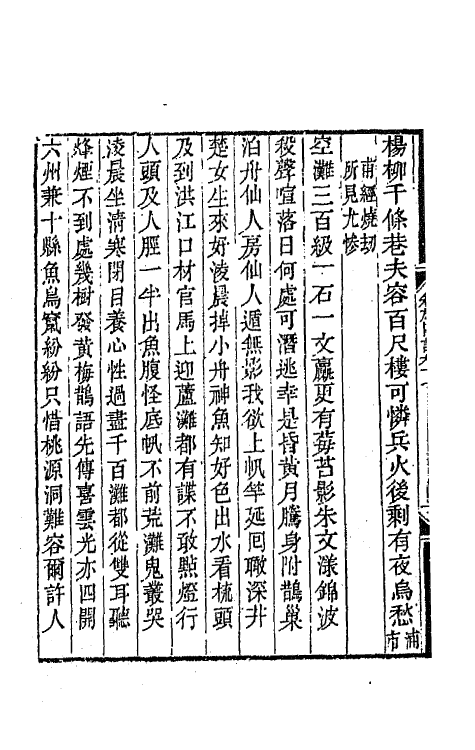 楊柳千條巷夫容百尺樓可憐兵火後剩有夜烏愁浦市
甫經燒刼
所見尤慘
空灘三百級一石一文䕷更有莓苔影朱文漾錦波
役聲喧落日何處可潛逃幸是昏黃月騰身附鵲巢
泊舟仙人房仙人遁無影我欲上帆竿延回瞰深井
楚女生來好淩晨掉小舟神魚知好色出水看梳頭
及到洪江口材官馬上迎蘆灘都有諜不敢㸃燈行
人頭及人脛一半出魚腹怪底帆不前荒灘鬼叢哭
淩晨坐清寒閉目養心性過盡千百灘都從雙耳聽
烽煙不到處幾樹發黃梅鵲語先傳喜雲光亦四開
六州兼十縣魚鳥竄紛紛只惜桃源洞難容爾許人